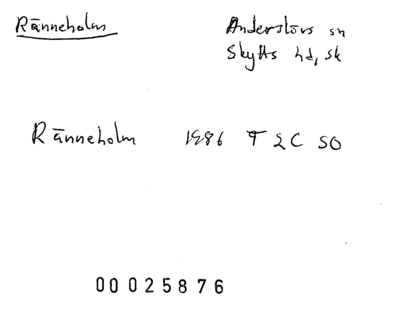 Ränneholm
Anderslövs sn
Skytts hd, sk
Ränneholm 1986 T 2C SO
00025876